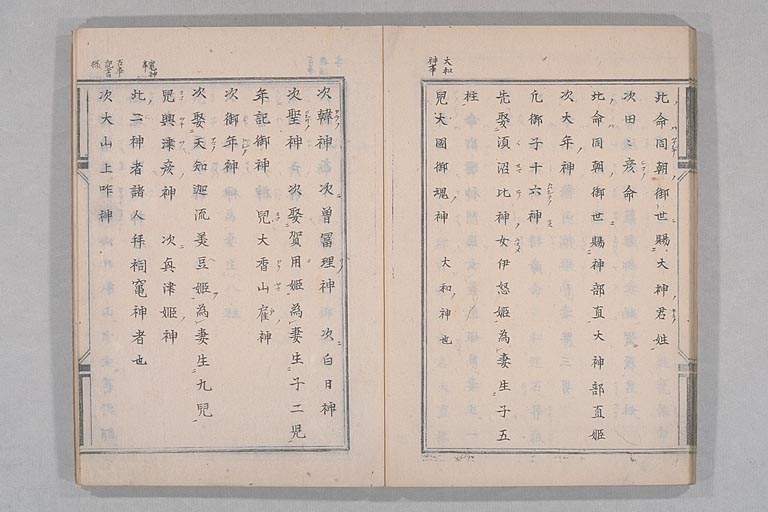 大和
神事
此命同朝御世賜大神君姓
次田々彦命
此命同朝御世賜神部直大神部直姫
次大年神
凢御子十六神
先娶須沼比神女伊怒姫為妻生子五
柱
兒大國御魂神 大和神也
次韓神 次曽冨理神 次白日神
次聖神 次娶賀用姫為妻生子二児
年記御神 兒大香山雇神
次御年神
次娶天知迦流美豆姫為妻生九児
兒興津彦神 次奥津姫神
此二神者諸人拜祠竃神者也
次大山上咋神
竃神
事
古事
記言